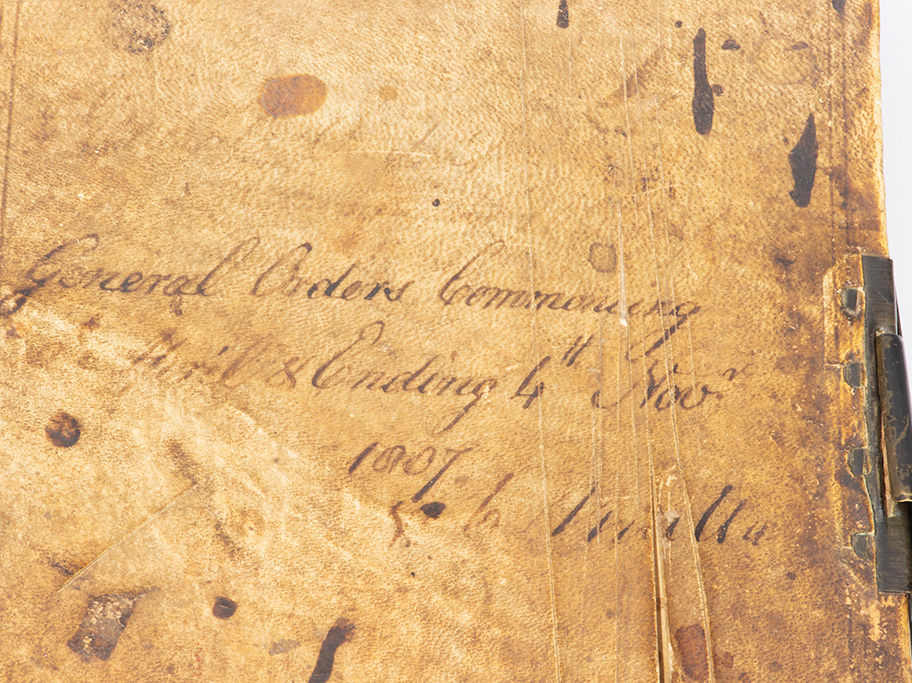 General Orders Commencing
April & Ending 4th Novr
1807